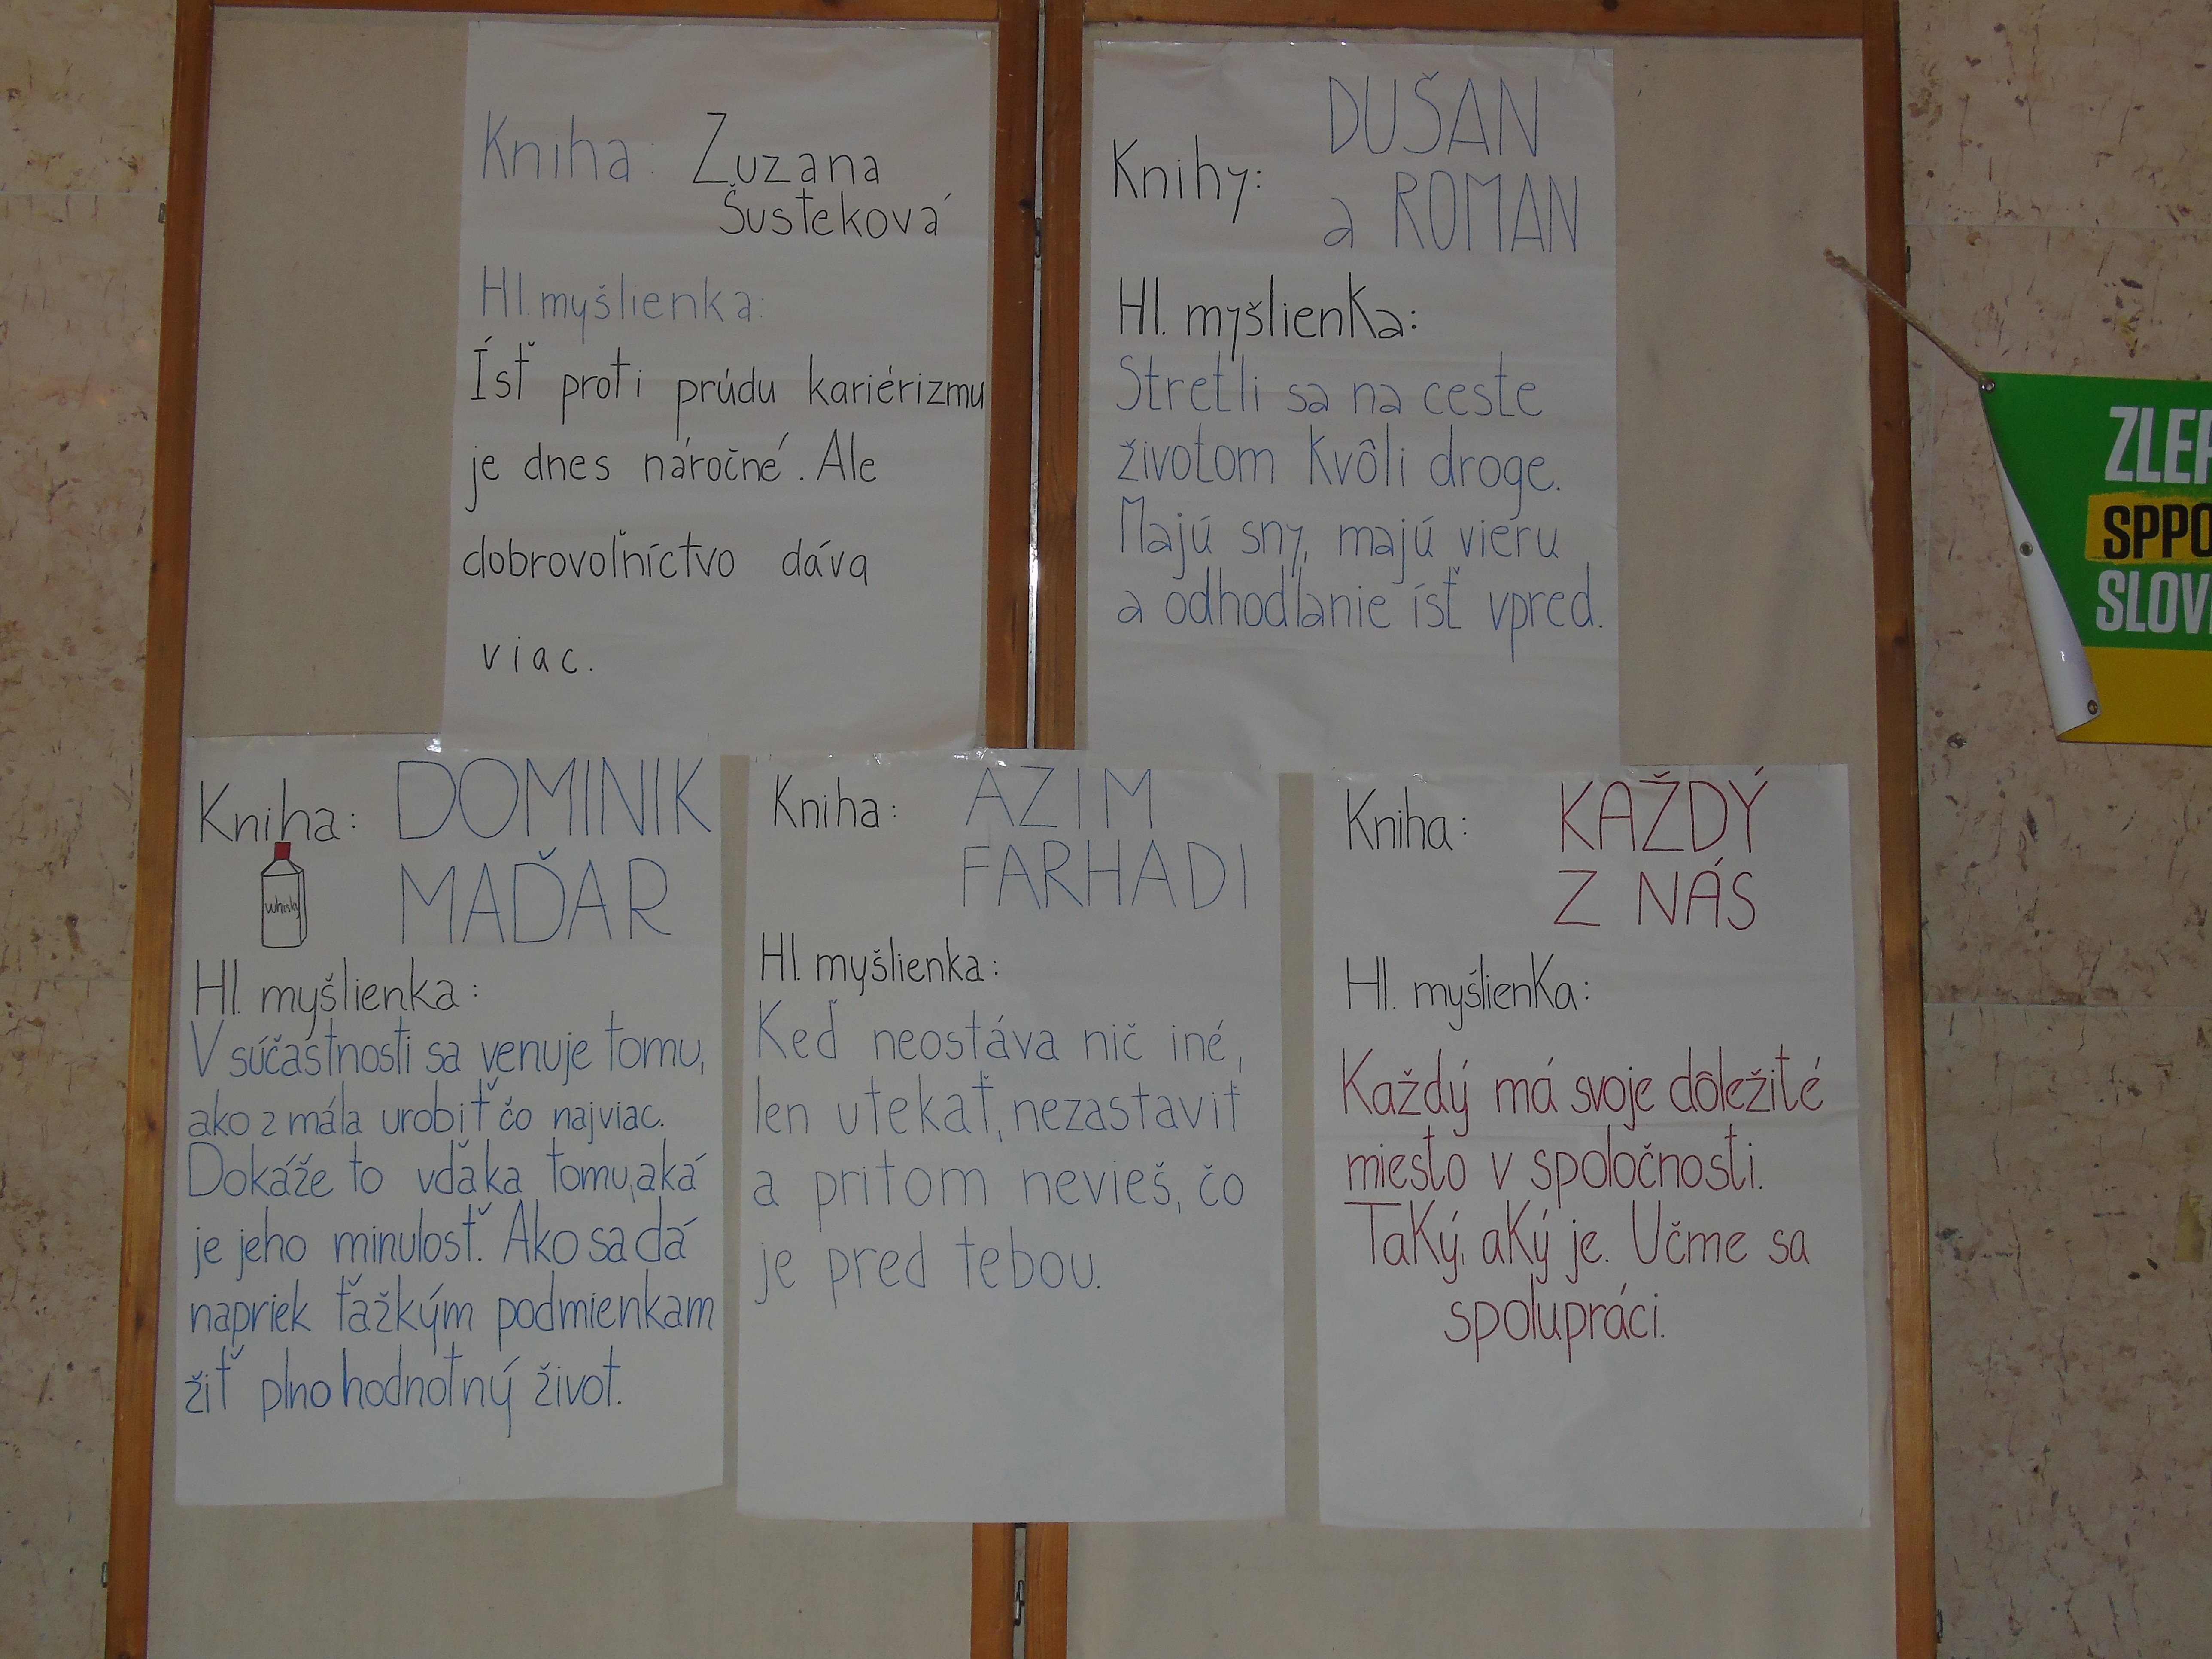 Kniha: Zuzana
Šusteková
Hl. myšlienka:
Ísť proti prúdu kariérizmu
je dnes náročné. Ale
dobrovoľníctvo dáva
viac.
Knihy: DUŠAN
a ROMAN
Hl. myšlienka:
Stretli sa na ceste
životom kvôli droge.
Majú sny, majú vieru
a odhodlanie ísť vpred.
Kniha: DOMINIK
MAĎAR
Whisky
Hl. myšlienka:
V súčastnosti sa venuje tomu,
ako z mála urobiť čo najviac.
Dokáže to vďaka tomu, aká
je jeho minulosť. Ako sa dá
napriek ťažkým podmienkam
žiť plnohodnotný život.
Kniha: AZIM
FARHADI
Hl. myšlienka:
Keď neostáva nič iné,
len utekať, nezastaviť
a pritom nevieš, čo
je pred tebou.
Kniha: KAŽDÝ
Z NÁS
Hl. myšlienka:
Každý má svoje dôležité
miesto v spoločnosti.
Taký, aký je. Učme sa
spolupráci.
ZLEP
SPPO
SLOV